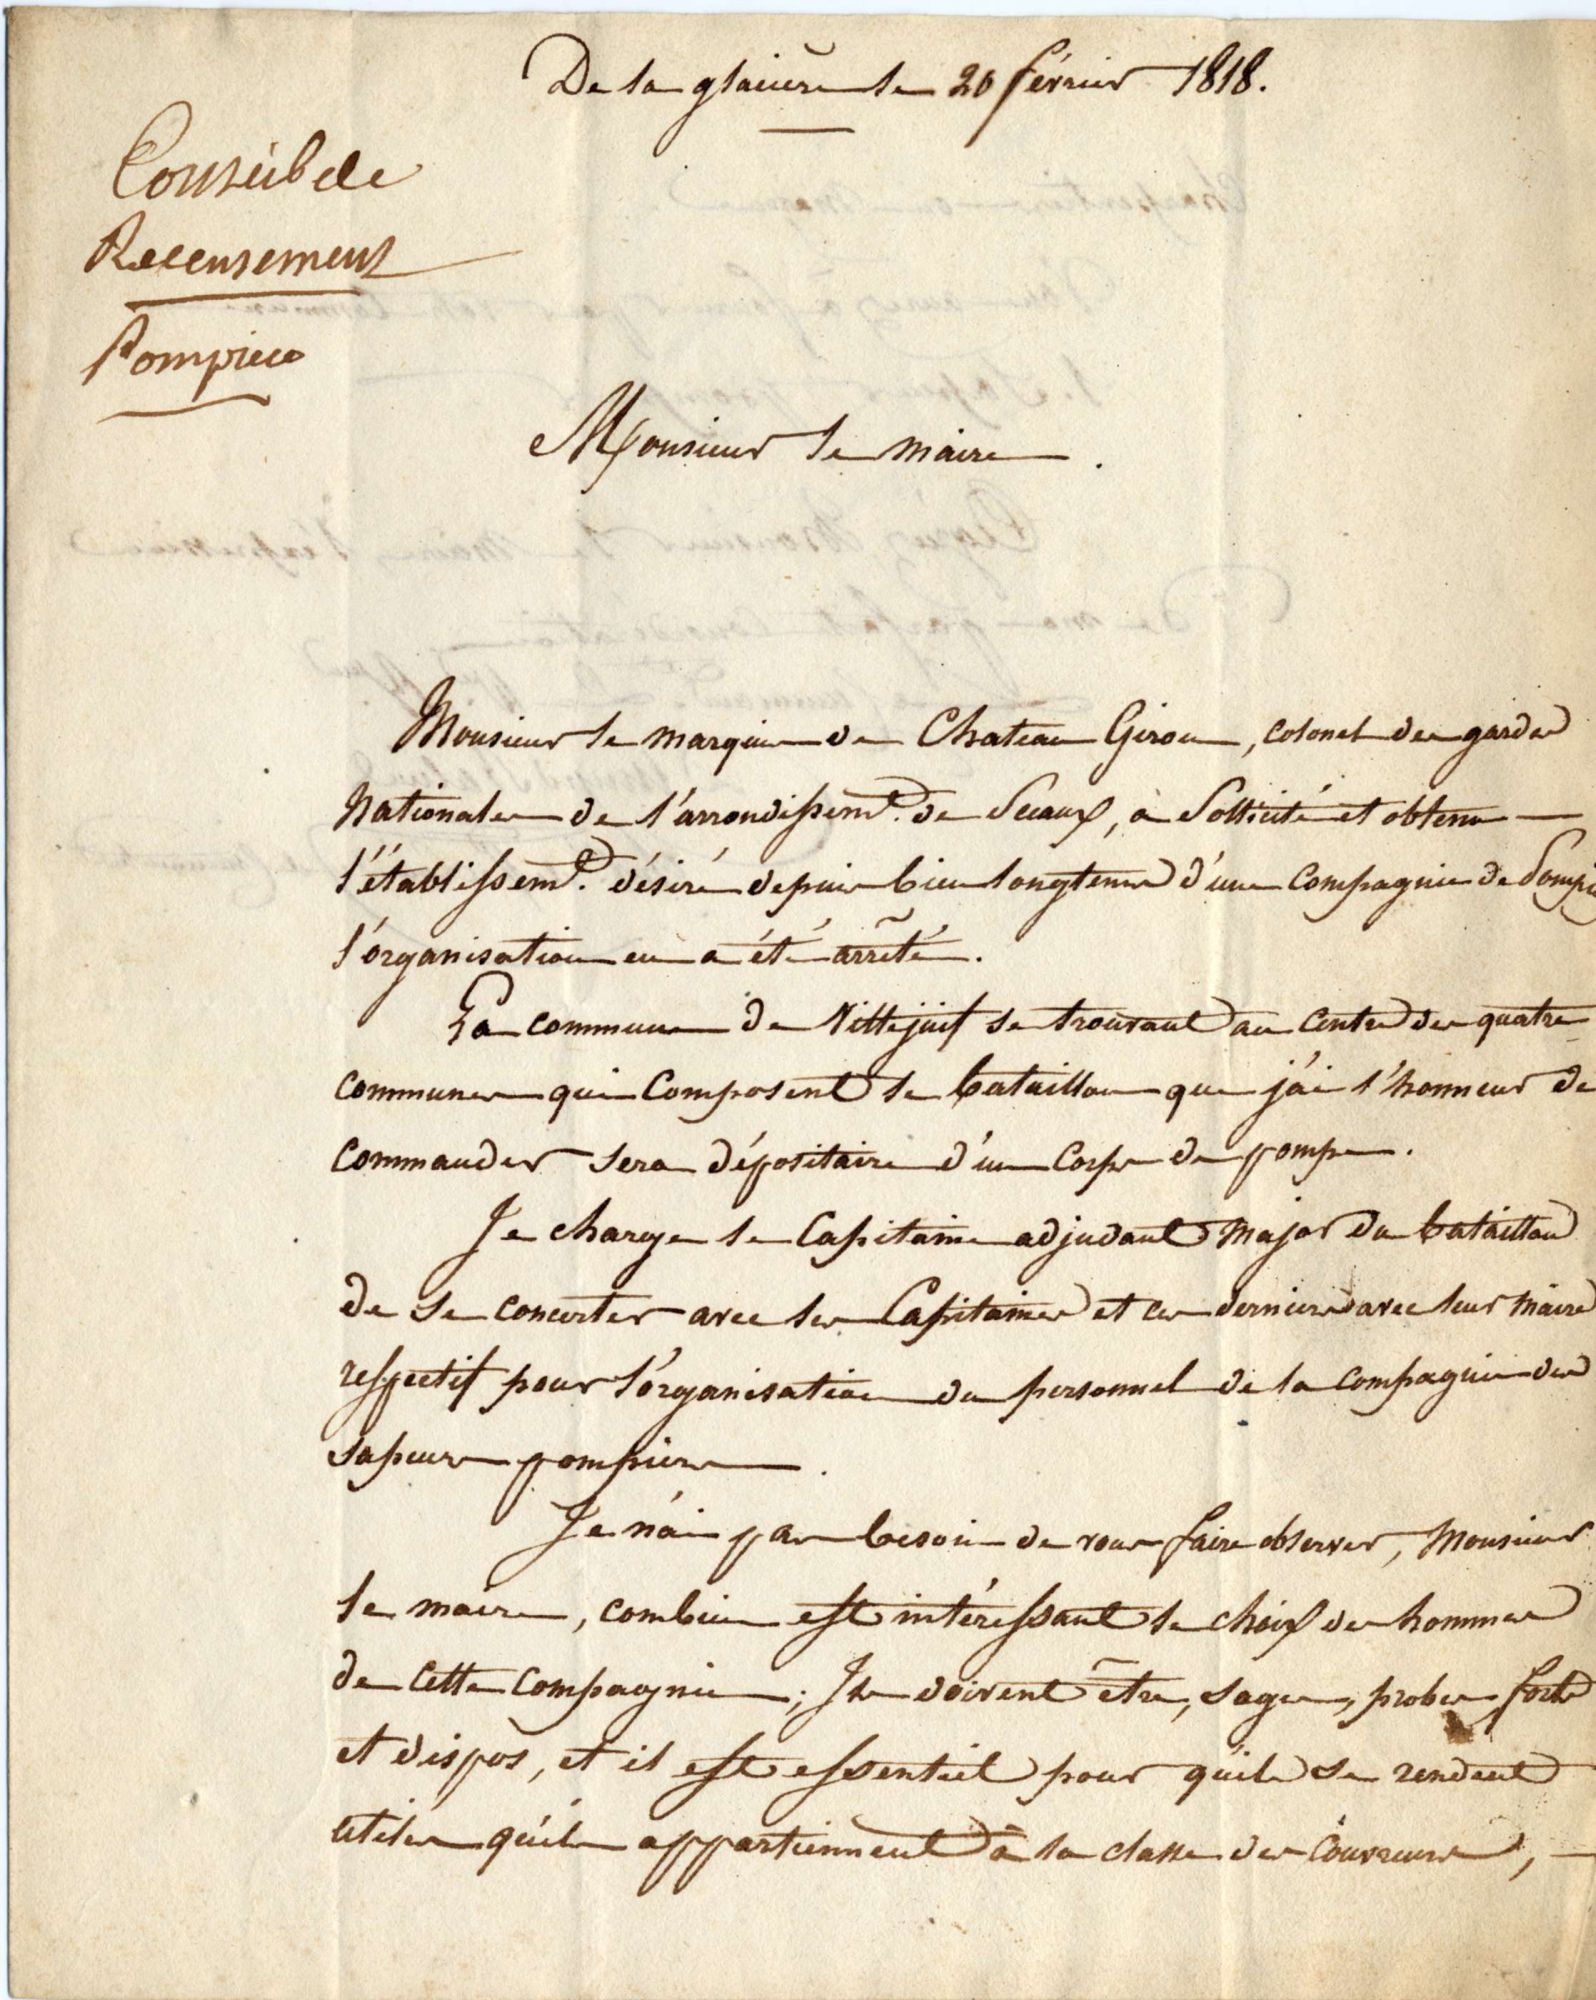 De la glacière le 20 février 1818.
Conseil de
Recensement
Pompiers
Monsieur le maire.
Monsieur le marquis de Chateau Giron, colonel des gardes
Nationales de l'arrondissemt. de Sceaux, à Sollicité et obtenu
l'établissemt. désiré depuis bien longtems d'une compagnie de Pompie
l'organisation en a été arrêté.
La commune de Villejuif se trouvant au centre des quatre
communes qui composent le bataillon que j'ai l'honneur de
commander sera dépositaire d'un corps de pompe.
Je charge le Capitaine adjudant major du bataillon
de se concerter avec les Capitaines et ces derniers avec leur maire
respectif pour l'organisation du personnel de la compagnie des
sapeurs pompiers.
Je n'ai pas besoin de vous faire observer, Monsieur
le maire, combien est intéressant le choix des hommes
de cette compagnie; Ils doivent être, sages, probes, forts
et dispos, et il est essentiel pour qu'ils se rendent
utiles qu'ils appartiennent à la classe des Couvreurs,